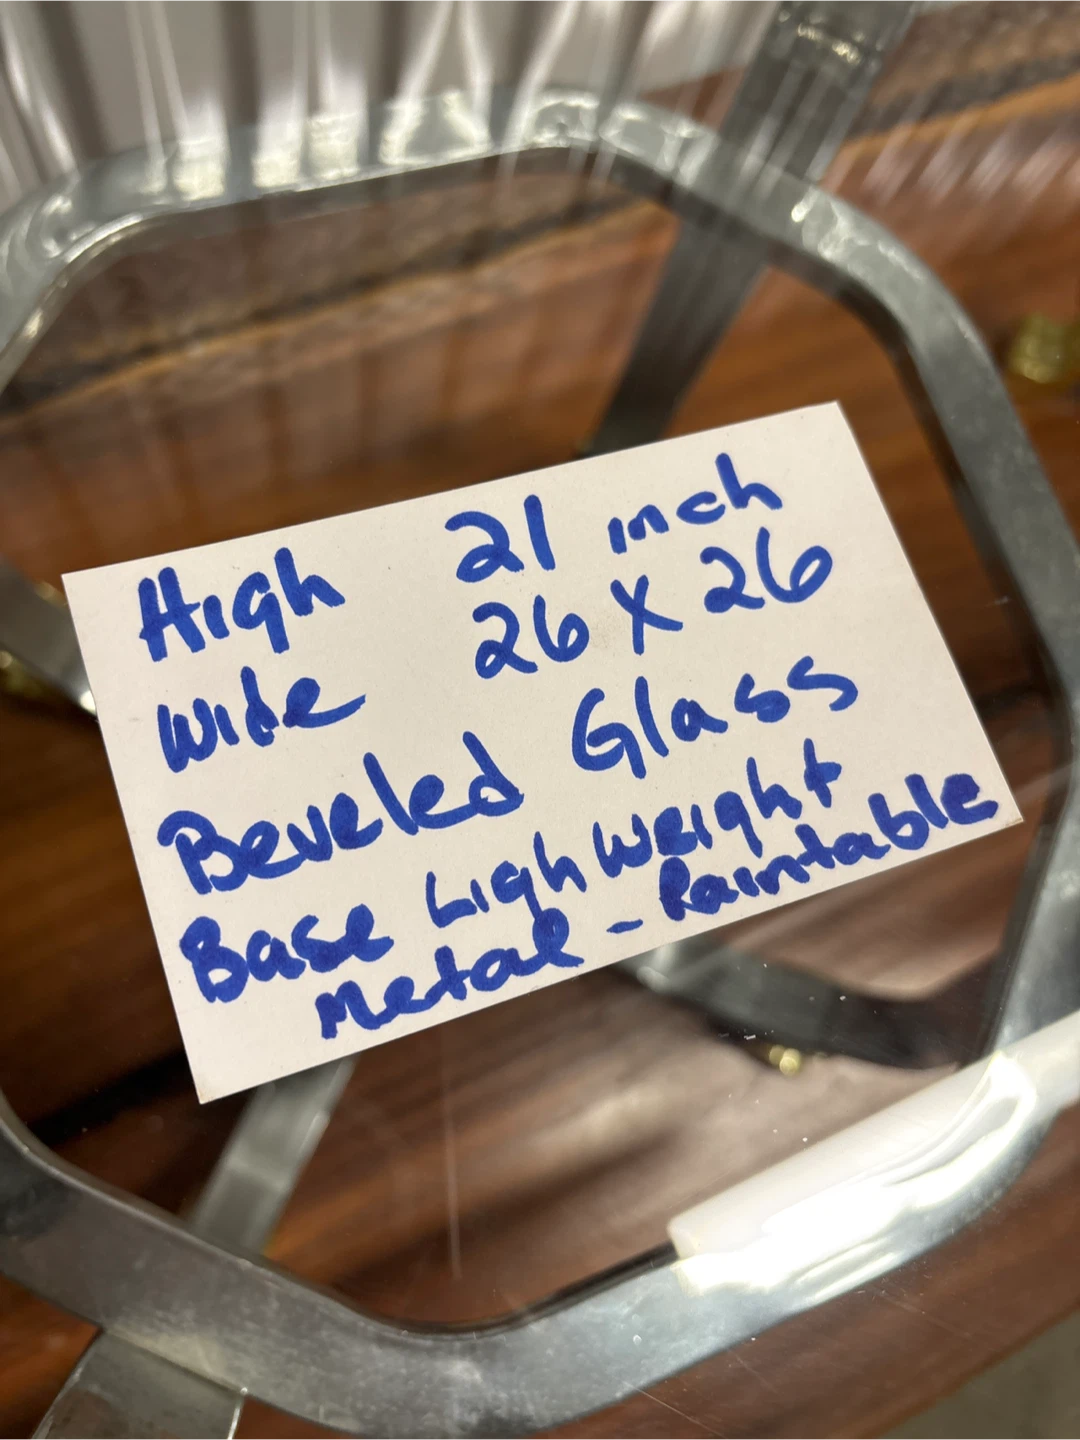 High 21 inch
Wide 26 X 26
Beveled Glass
Base Ligh weight
Metal - Paintable